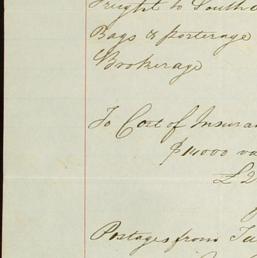 Freight to South
Bags & porterage
Brokerage
To Cost of Insura
$14000 va
£2
Postages from